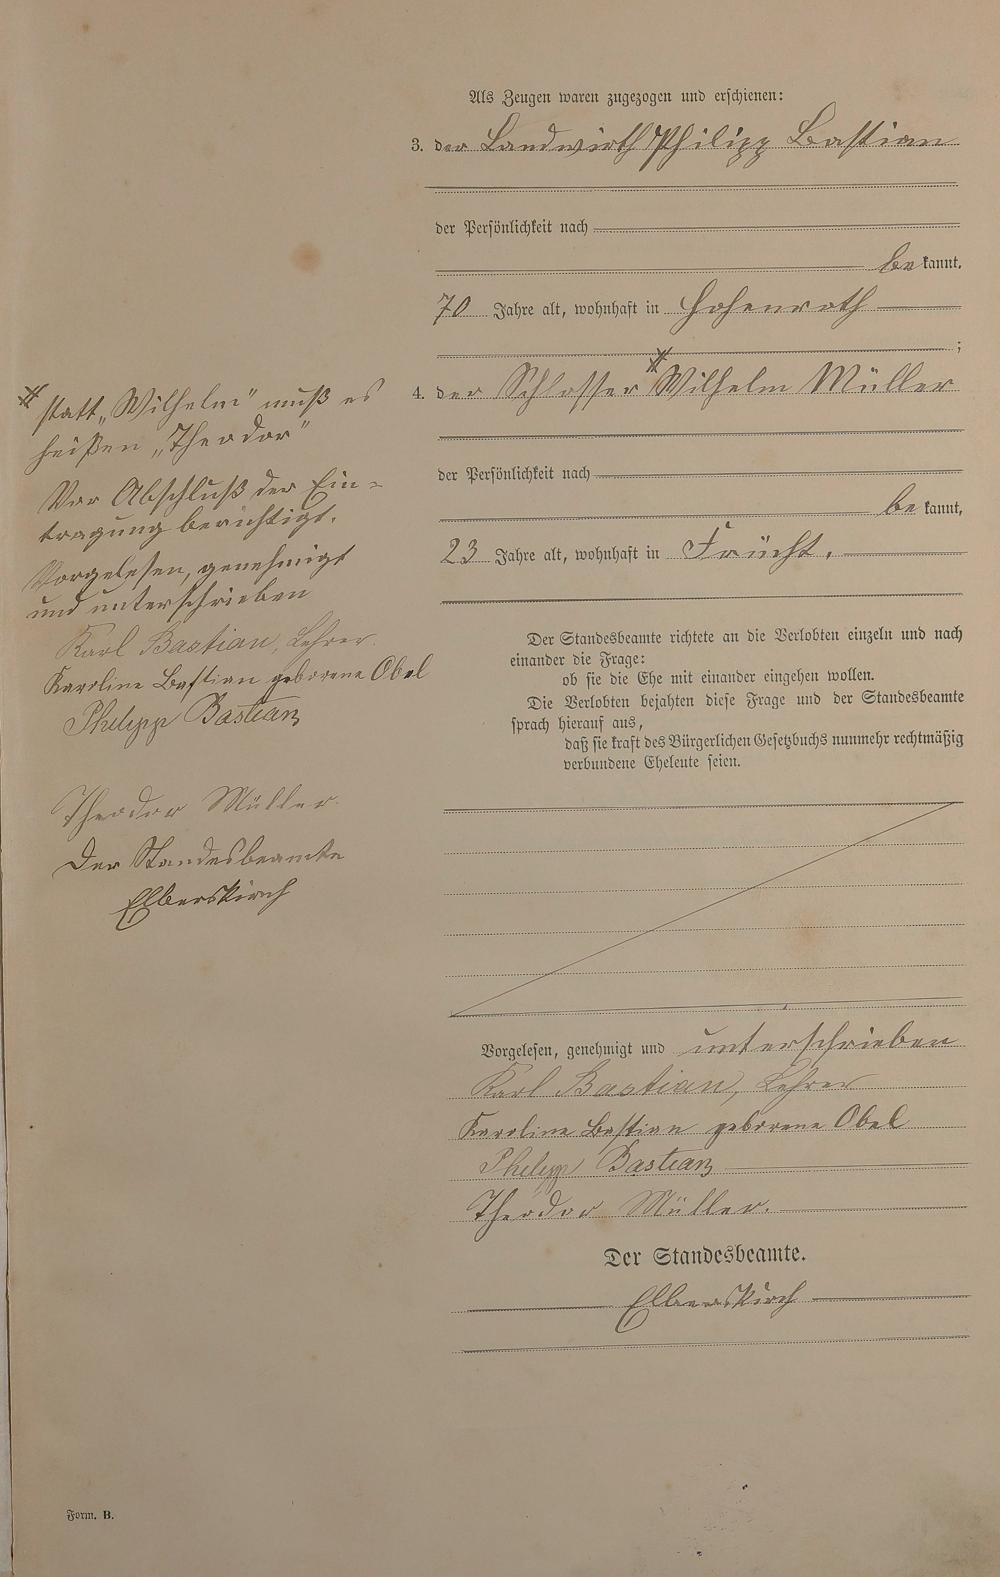 Als Zeugen waren zugezogen und erschienen:
3. der Landwirth Philipp Bastian
der Persönlichkeit nach
bekannt,
70 Jahre alt, wohnhaft in Hohenroth
;
4. der Schlosser # Wilhelm Müller
der Persönlichkeit nach
bekannt,
23 Jahre alt, wohnhaft in Frücht.
# statt „Wilhelm" muß es
heißen „Theodor"
Vor Abschluß der Ein=
tragung berichtigt.
Vorgelesen, genehmigt
und unterschrieben
Karl Bastian, Lehrer.
Karoline Bastian geborene Obel
Philipp Bastian
Theodor Müller.
Der Standesbeamte
Elberskirch
Der Standesbeamte richtete an die Verlobten einzeln und nach
einander die Frage:
ob sie die Ehe mit einander eingehen wollen.
Die Verlobten bejahten diese Frage und der Standesbeamte
sprach hierauf aus,
daß sie kraft des Bürgerlichen Gesetzbuchs nunmehr rechtmäßig
verbundene Eheleute seien.
Vorgelesen, genehmigt und unterschrieben
Karl Bastian, Lehrer
Karoline Bastian geborene Obel
Philipp Bastian
Theodor Müller.
Der Standesbeamte.
Elberskirch
Form. B.